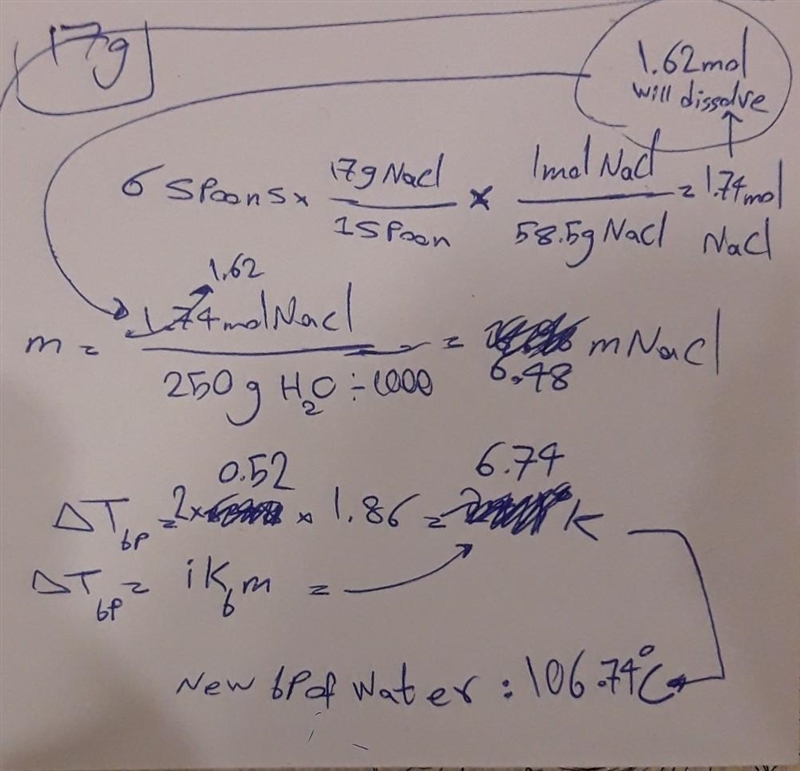 17g
1.62mol
will dissolve
6 spoons × 17g NaCl / 1 spoon × 1mol NaCl / 58.5g NaCl = 1.74mol NaCl
1.62
m = 1.74molNaCl / 250g H₂O ÷ 1000 = 6.48 mNaCl
0.52 6.74
ΔTbp = 2× × 1.86 = K
ΔTbp = iKbm =
New bp of Water : 106.74°C